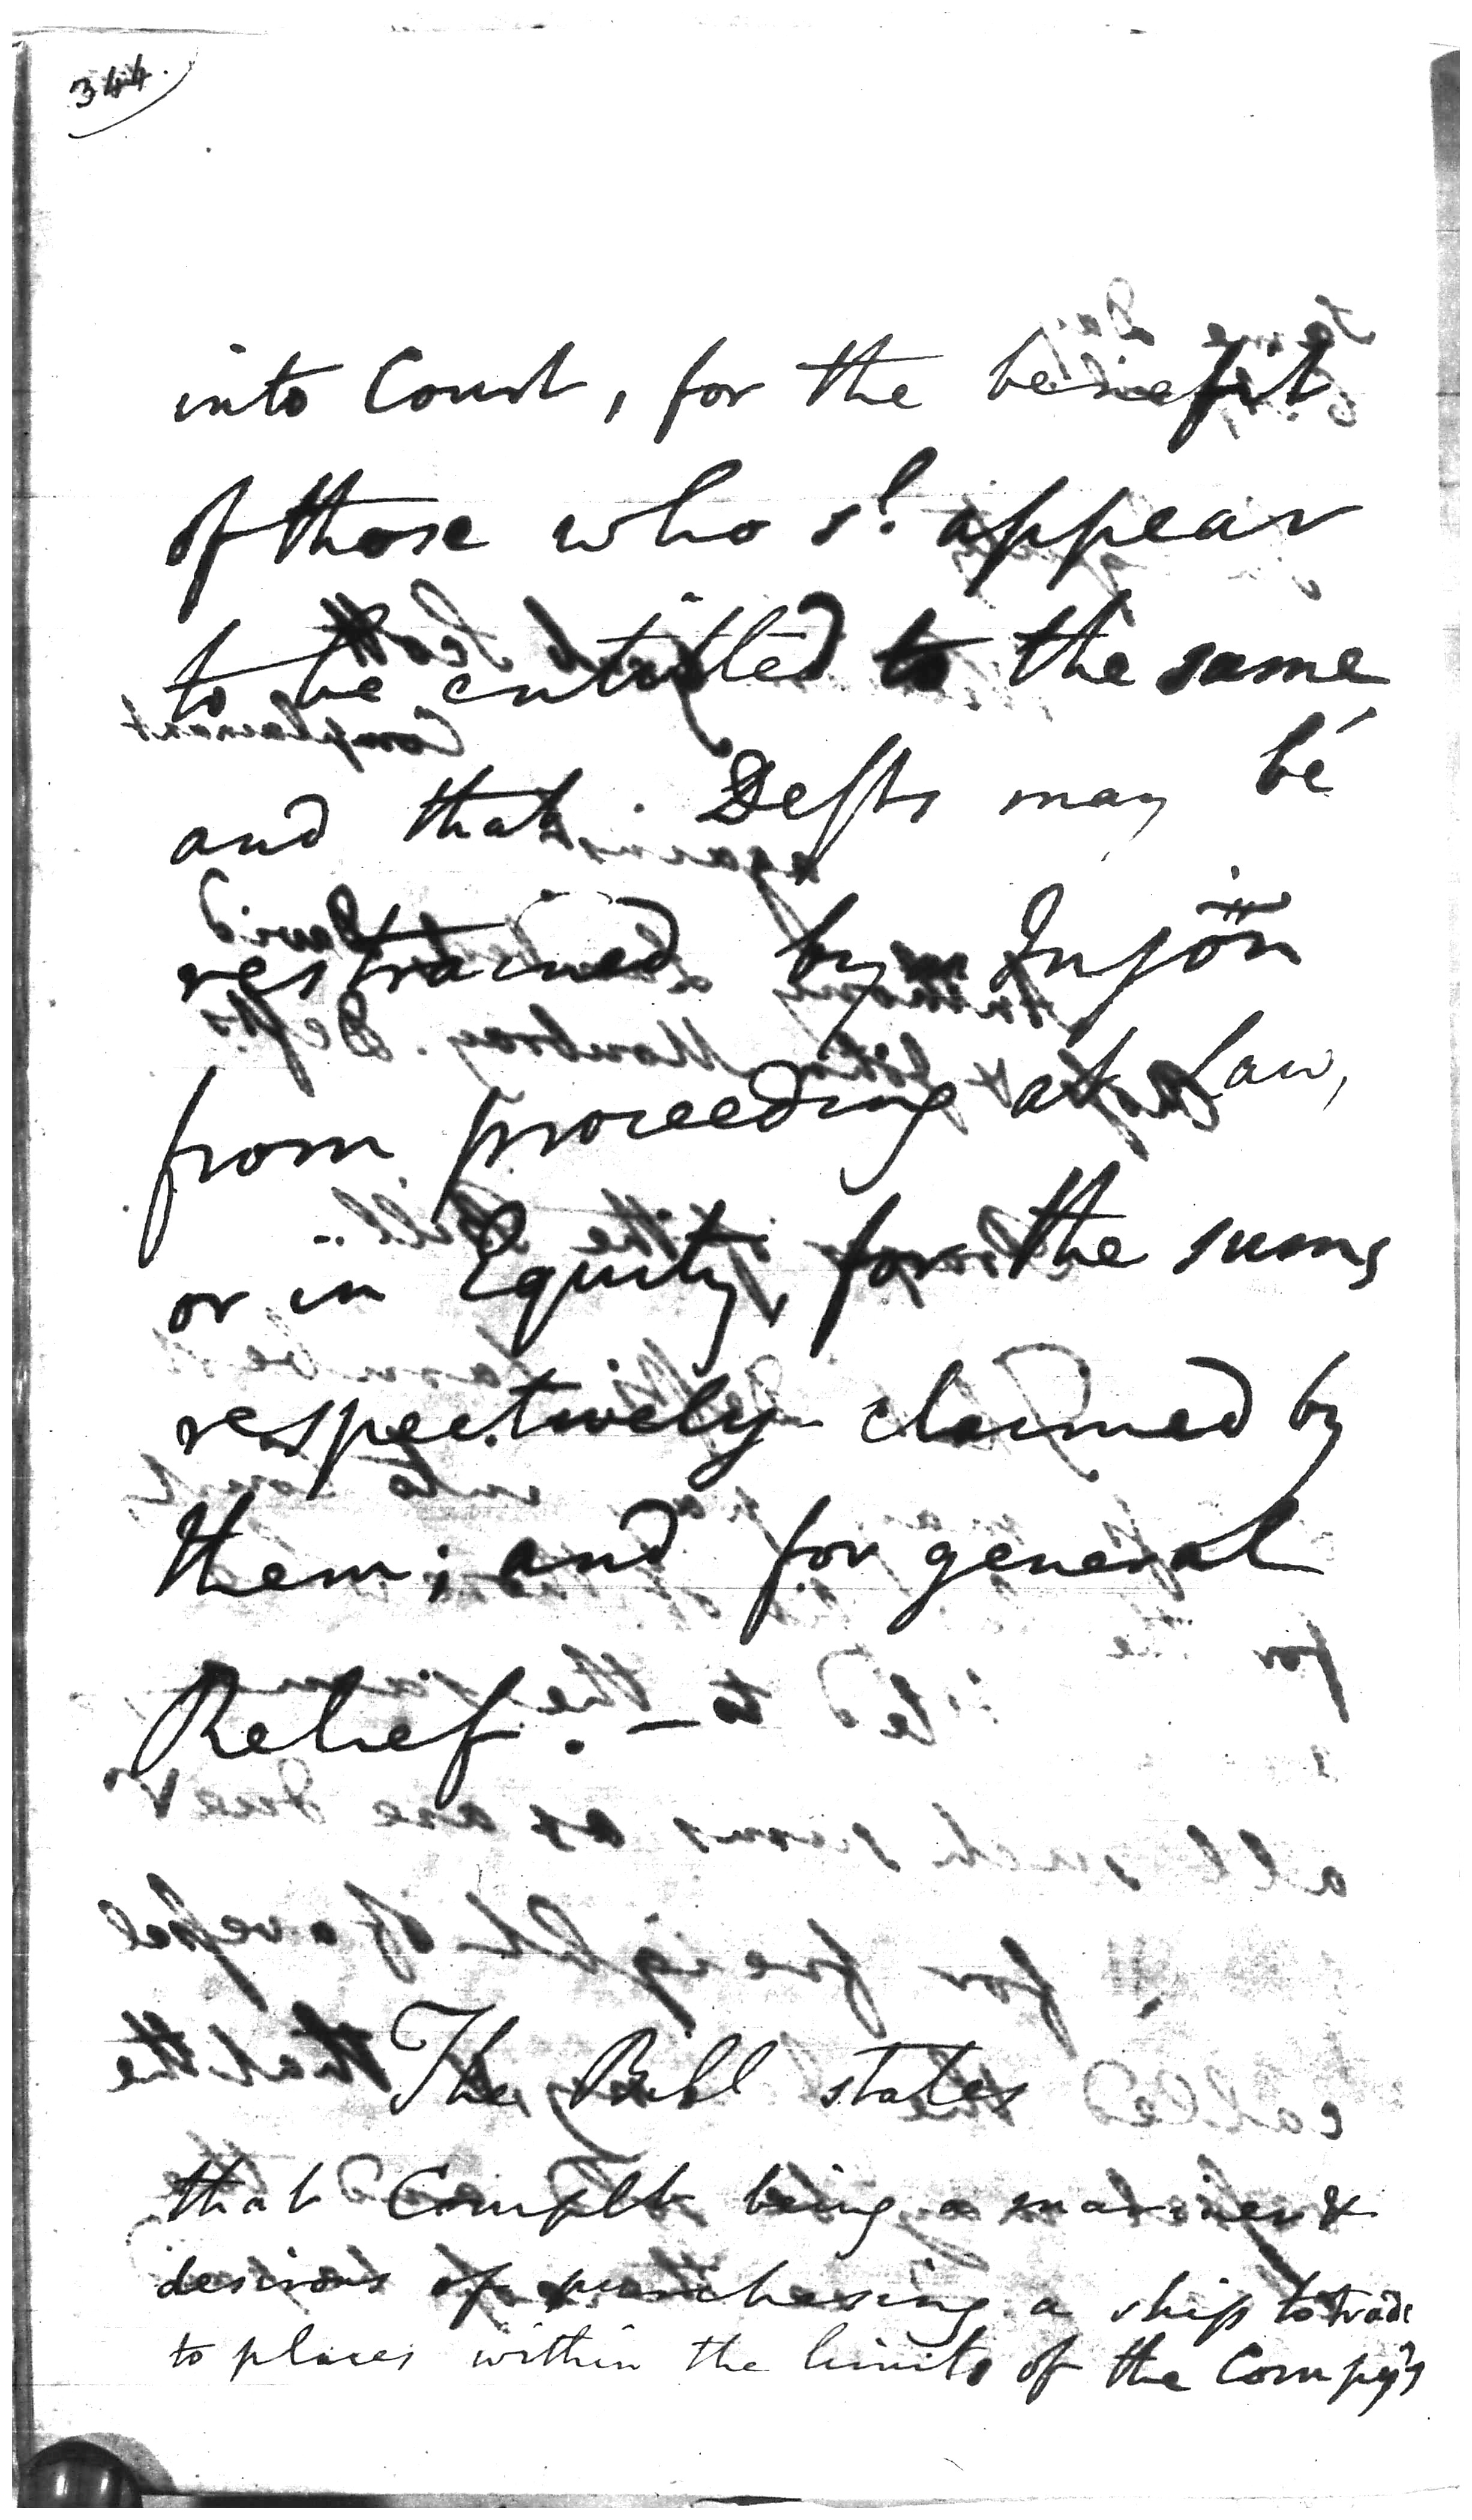 344.
into Court, for the benefit
of those who sd. appear
to be entitled to the same
and that Defts may be
restrained by Injōn
from proceeding at Law,
or in Equity, for the sums
respectively claimed by
them; and for general
Relief. —
The Bill states
that Complt being a mariner &
desirous of purchasing a ship to trade
to places within the limits of the Compy's